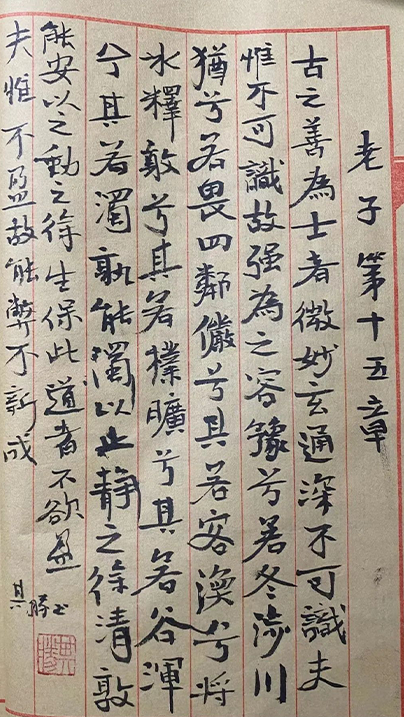 老子第十五章
古之善為士者微妙玄通深不可識夫
惟不可識故强為之容豫兮若冬涉川
猶兮若畏四鄰儼兮其若客渙兮將
氷釋敦兮其若樸曠兮其若谷渾
兮其若濁孰能濁以止靜之徐清孰
能安以之動之徐生保此道者不欲盈
夫惟不盈故能弊不新成
其勝书